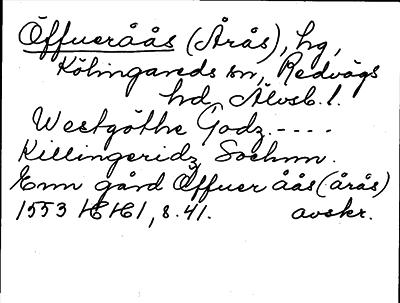 Öffueråås (Årås), hg,
Kölingareds sn, Redvägs
hd, Älvsb. l.
Westgöthe Godz.----
Killingeridz Sochnn.
Enn gård Öffuer åås (årås)
1553 HH1, s. 41. avskr.